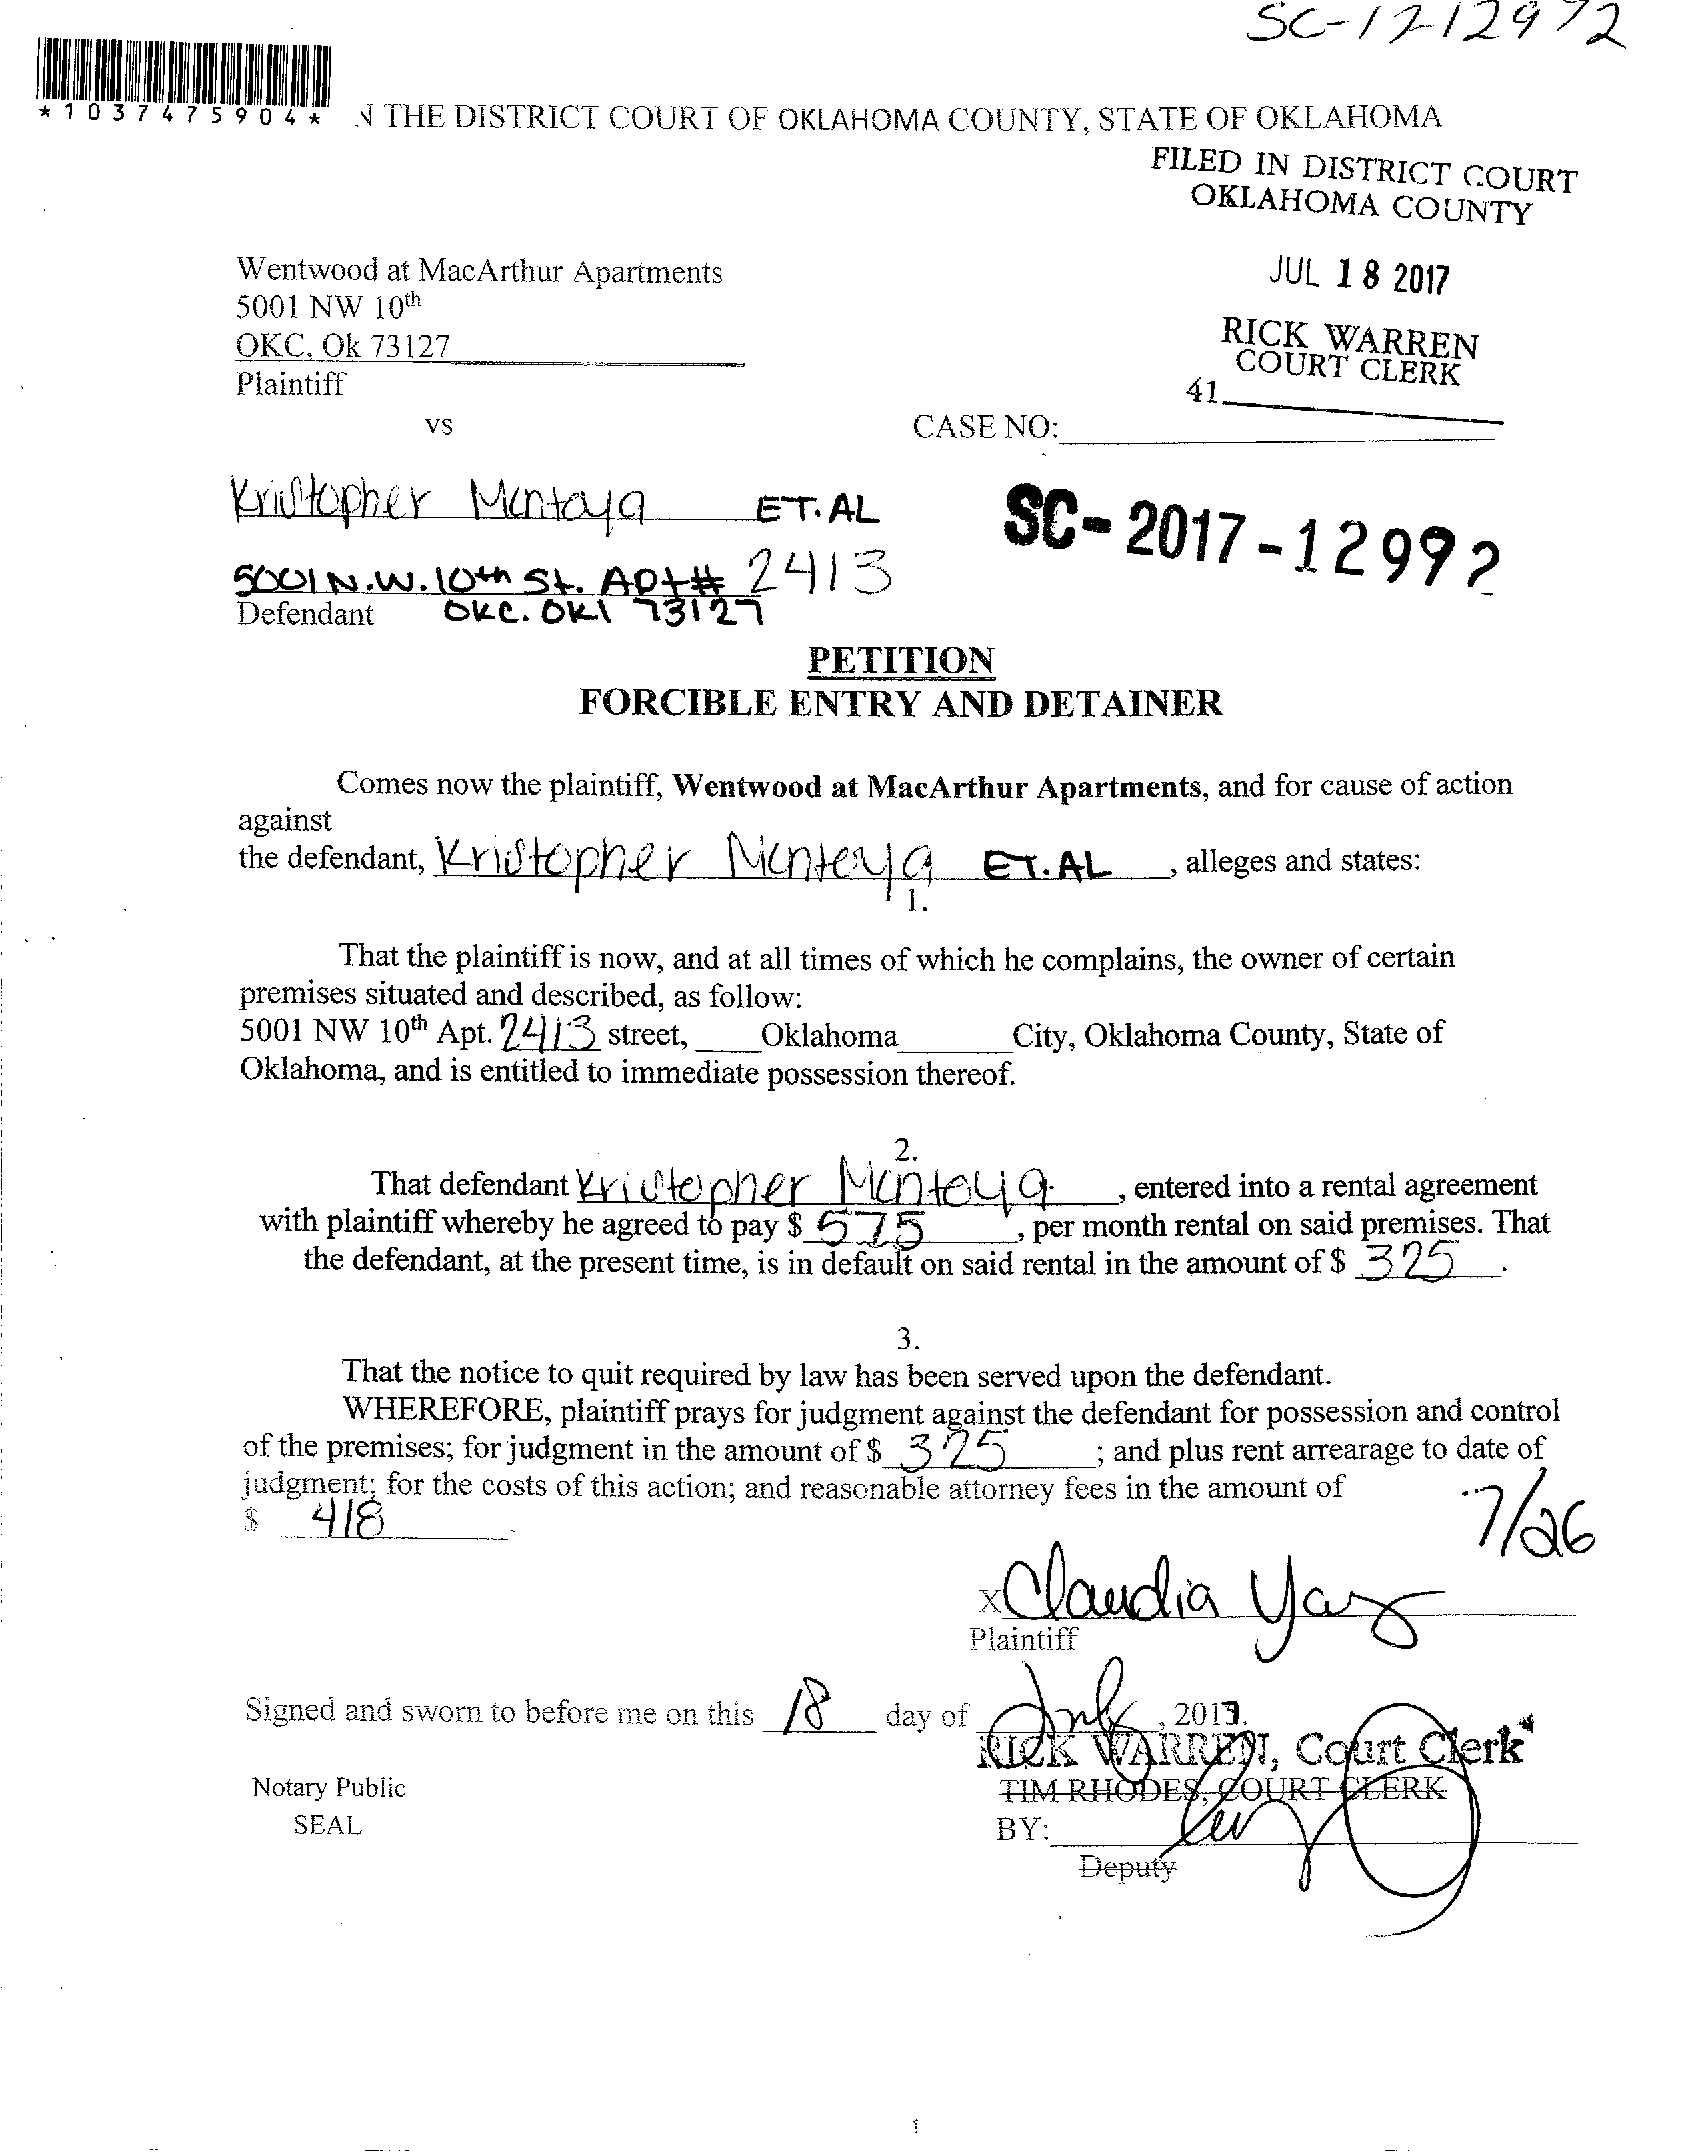 SC-17-12992
*1037475904*
N THE DISTRICT COURT OF OKLAHOMA COUNTY, STATE OF OKLAHOMA
FILED IN DISTRICT COURT
OKLAHOMA COUNTY
JUL 18 2017
RICK WARREN
COURT CLERK
41
Wentwood at MacArthur Apartments
5001 NW 10th
OKC, Ok 73127
Plaintiff
vs
CASE NO:
Kristopher Montoya ET.AL
SC-2017-12992
5001 N.W. 10th St. Apt# 2413
Defendant OKC. OKl 73127
PETITION
FORCIBLE ENTRY AND DETAINER
Comes now the plaintiff, Wentwood at MacArthur Apartments, and for cause of action
against
the defendant, Kristopher Montoya ET.AL , alleges and states:
1.
That the plaintiff is now, and at all times of which he complains, the owner of certain
premises situated and described, as follow:
5001 NW 10th Apt. 2413 street, Oklahoma City, Oklahoma County, State of
Oklahoma, and is entitled to immediate possession thereof.
2.
That defendant Kristopher Montoya , entered into a rental agreement
with plaintiff whereby he agreed to pay $ 575 , per month rental on said premises. That
the defendant, at the present time, is in default on said rental in the amount of $ 325 .
3.
That the notice to quit required by law has been served upon the defendant.
WHEREFORE, plaintiff prays for judgment against the defendant for possession and control
of the premises; for judgment in the amount of $ 325 ; and plus rent arrearage to date of
judgment; for the costs of this action; and reasonable attorney fees in the amount of
$ 418
7/26
x Claudia Yaz
Plaintiff
Signed and sworn to before me on this 18 day of July, 2017.
RICK WARREN, Court Clerk
TIM RHODES, COURT CLERK
Notary Public
SEAL
BY:
Deputy
1